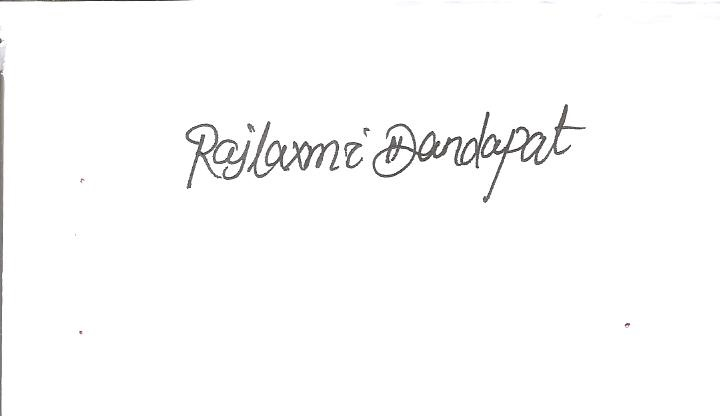 Rajlaxmi Dandapat